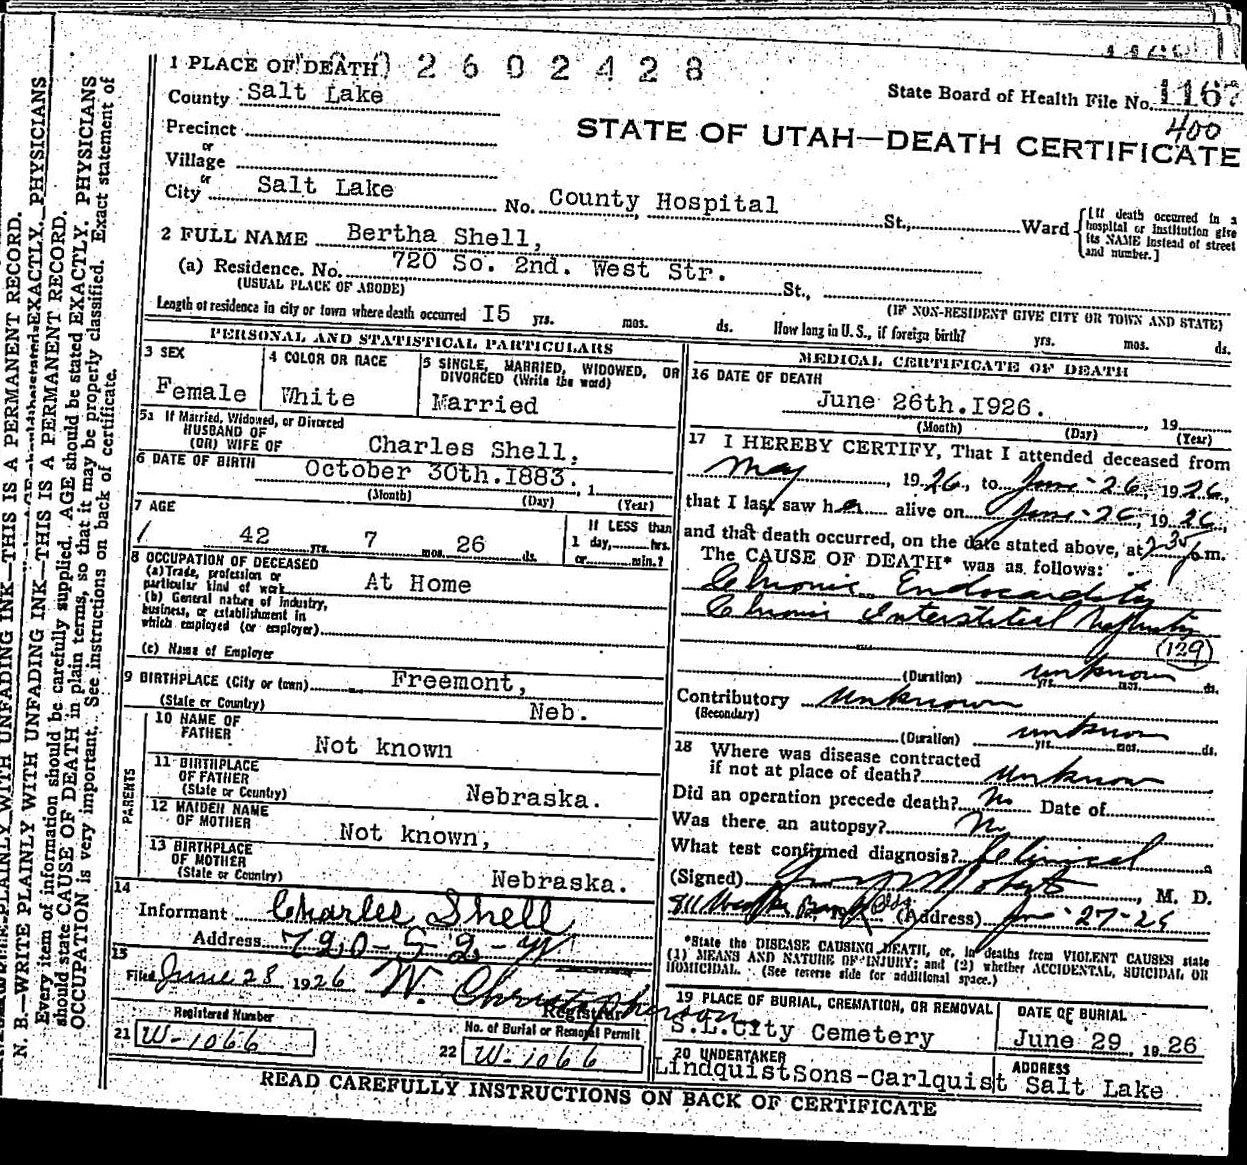 1 PLACE OF DEATH 2602428
State Board of Health File No. 1167
400
County Salt Lake
STATE OF UTAH—DEATH CERTIFICATE
Precinct
or
Village
or
City Salt Lake No. County Hospital St., Ward
[If death occurred in a hospital or institution give its NAME instead of street and number.]
2 FULL NAME Bertha Shell,
(a) Residence. No. 720 So. 2nd. West Str. St.,
(USUAL PLACE OF ABODE) (IF NON-RESIDENT GIVE CITY OR TOWN AND STATE)
Length of residence in city or town where death occurred I5 yrs. mos. ds. How long in U.S., if foreign birth? yrs. mos. ds.
PERSONAL AND STATISTICAL PARTICULARS
3 SEX
Female
4 COLOR OR RACE
White
5 SINGLE, MARRIED, WIDOWED, OR
DIVORCED (Write the word)
Married
5a If Married, Widowed, or Divorced
HUSBAND OF
(OR) WIFE OF Charles Shell,
6 DATE OF BIRTH October 30th.I883. , 1
(Month) (Day) (Year)
7 AGE
42 yrs. 7 mos. 26 ds.
If LESS than
1 day, hrs.
or min.?
8 OCCUPATION OF DECEASED
(a) Trade, profession or
particular kind of work At Home
(b) General nature of industry,
business, or establishment in
which employed (or employer)
(c) Name of Employer
9 BIRTHPLACE (City or town) Freemont,
(State or Country) Neb.
PARENTS
10 NAME OF
FATHER Not known
11 BIRTHPLACE
OF FATHER
(State or Country) Nebraska.
12 MAIDEN NAME
OF MOTHER Not known,
13 BIRTHPLACE
OF MOTHER
(State or Country) Nebraska.
14
Informant Charles Shell
Address 720-S-2-W
15
Filed June 28 1926 W. Christopherson
Registrar
Registered Number
21 W-1066
No. of Burial or Removal Permit
22 W-1066
MEDICAL CERTIFICATE OF DEATH
16 DATE OF DEATH
June 26th.I926. , 19
(Month) (Day) (Year)
17 I HEREBY CERTIFY, That I attended deceased from
May , 1926, to June-26, 1926,
that I last saw her alive on June-26, 1926,
and that death occurred, on the date stated above, at m.
The CAUSE OF DEATH* was as follows:
Chronic Endocarditis
Chronic Interstitial Nephritis
(129)
(Duration) unknown yrs. mos. ds.
Contributory Unknown
(Secondary)
(Duration) unknown yrs. mos. ds.
18 Where was disease contracted
if not at place of death? Unknown
Did an operation precede death? No Date of
Was there an autopsy? No
What test confirmed diagnosis? Clinical
(Signed) Roberts , M. D.
811 Bank (Address) June-27-26
*State the DISEASE CAUSING DEATH, or, in deaths from VIOLENT CAUSES state
(1) MEANS AND NATURE OF INJURY; and (2) whether ACCIDENTAL, SUICIDAL OR
HOMICIDAL. (See reverse side for additional space.)
19 PLACE OF BURIAL, CREMATION, OR REMOVAL
S.L.City Cemetery
DATE OF BURIAL
June 29 , 1926
20 UNDERTAKER
LindquistSons-Carlquist
ADDRESS
Salt Lake
READ CAREFULLY INSTRUCTIONS ON BACK OF CERTIFICATE
N. B.—WRITE PLAINLY WITH UNFADING INK—THIS IS A PERMANENT RECORD.
Every item of information should be carefully supplied. AGE should be stated EXACTLY. PHYSICIANS
should state CAUSE OF DEATH in plain terms, so that it may be properly classified. Exact statement of
OCCUPATION is very important. See instructions on back of certificate.